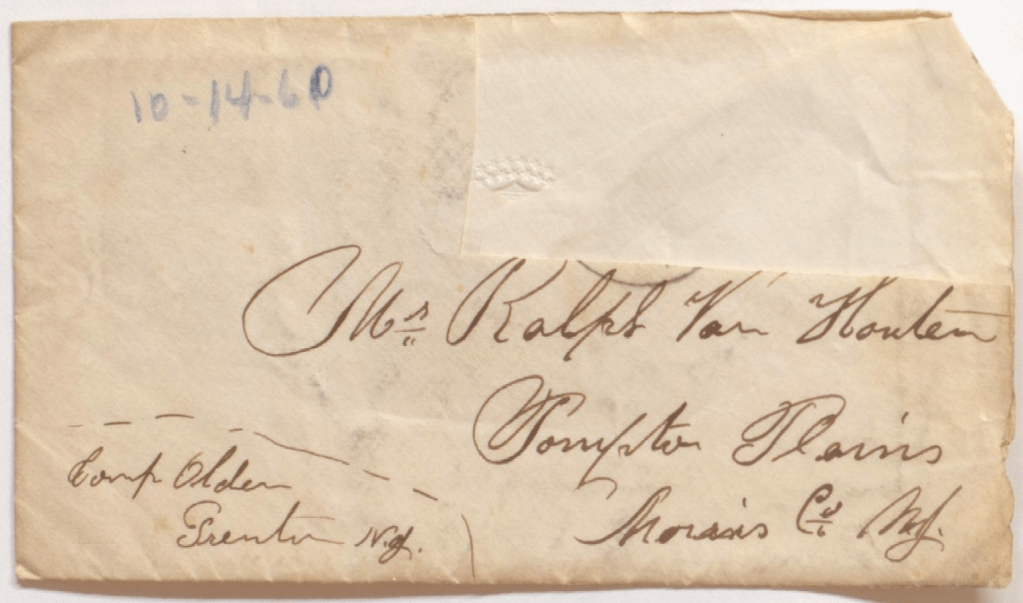 10-14-60
Mr Ralph Van Houten
Pompton Plains
Morris Co NJ.
Camp Olden
Trenton N.J.